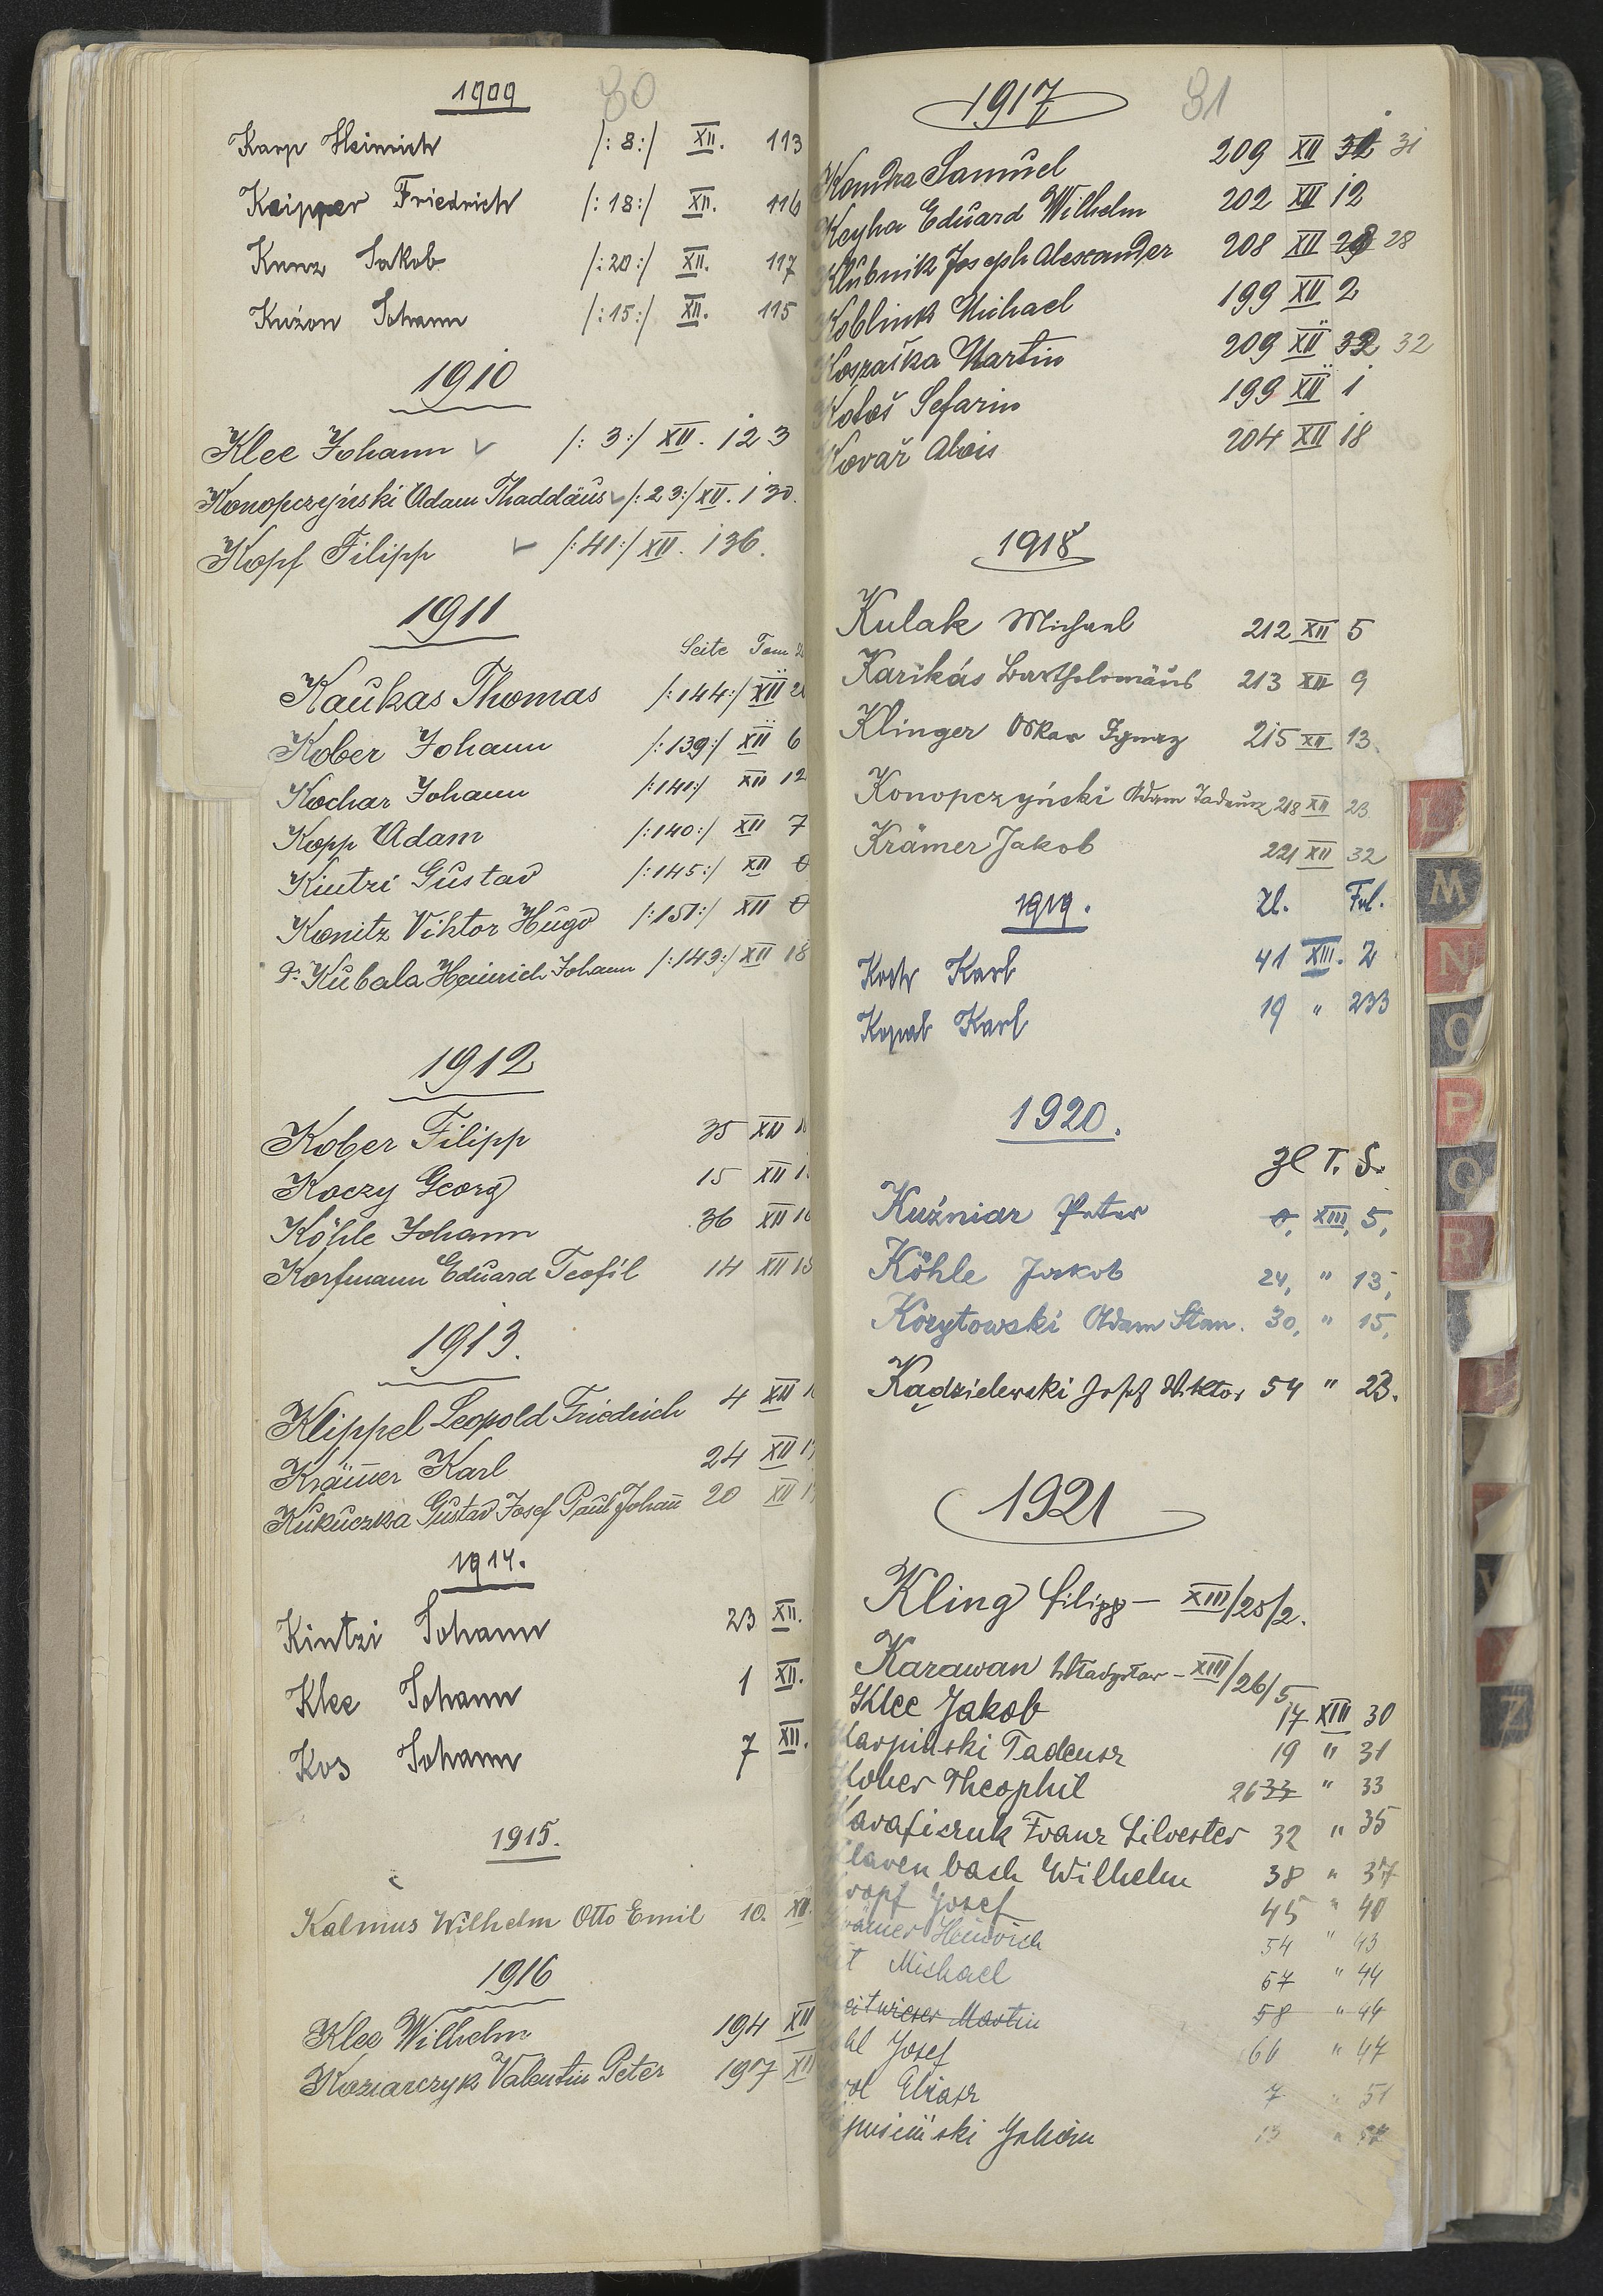 80
1909
Karp Heinrich /: 8:/ XII. 113
Keipper Friedrich /: 18:/ XII. 116
Kunz Jakob /: 20:/ XII. 117
Kuźon Johann /: 15:/ XII. 115
1910
Klee Johann /: 3:/ XII. 123
Konopczyński Adam Thaddäus /: 23:/ XII. 130.
Kopf Filipp /: 41:/ XII. 136.
1911
Seite Tom
Kaukas Thomas /: 144:/ XII
Kober Johann /: 139:/ XII 6
Kochar Johann /: 141:/ XII 12
Kopp Adam /: 140:/ XII 7
Kintzi Gustav /: 145:/ XII 0
Konitz Viktor Hugo /: 151:/ XII 0
Kubala Heinrich Johann /: 143:/ XII 18
1912
Kober Filipp 35 XII
Koczy Georg 15 XII
Köhle Johann 36 XII
Korfmann Eduard Teofil 14 XII
1913.
Klippel Leopold Friedrich 4 XII
Krämer Karl 24 XII
Kukuczka Gustav Josef Paul Johann 20 XII
1914.
Kintzi Johann 23 XII.
Klee Johann 1 XII.
Kos Johann 7 XII.
1915.
Kalmus Wilhelm Otto Emil 10. XII
1916
Klee Wilhelm 194 XII
Koziarczyk Valentin Peter 197 XII
81
1917
Kondra Samuel 209 XII 31
Keyha Eduard Wilhelm 202 XII 12
Klubnik Joseph Alexander 208 XII 28
Koblink Michael 199 XII 2
Kospaška Martin 209 XII 32 32
Kotoš Sefarin 199 XII 1
Kovař Alois 204 XII 18
1918
Kulak Michael 212 XII 5
Karikás Bartholomäus 213 XII 9
Klinger Oskar Ignaz 215 XII 13.
Konopczyński Adam Tadeusz 218 XII 23
Krämer Jakob 221 XII 32
1919. Zl. Fol.
Karl 41 XIII. 2
Karl 19 " 233
1920.
Zl T. S.
Kuźniar Peter 0, XIII, 5,
Köhle Jakob 24, " 13,
Korytowski Adam Stan. 30, " 15,
Kadzielewski Josef Viktor 54 " 23.
1921
Kling Filipp – XIII/25/2.
Karawan Władysław – XIII/26/5
Klee Jakob 17 XIII 30
Karpiński Tadeusz 19 " 31
Kober Theophil 26 33 " 33
Karaficzuk Franz Silvester 32 " 35
Klarenbach Wilhelm 38 " 37
Kropf Josef 45 " 40
Krämer Heinrich 54 " 43
Michael 57 " 44
Martin 58 " 44
Josef 66 " 47
Eliasz 7 " 51